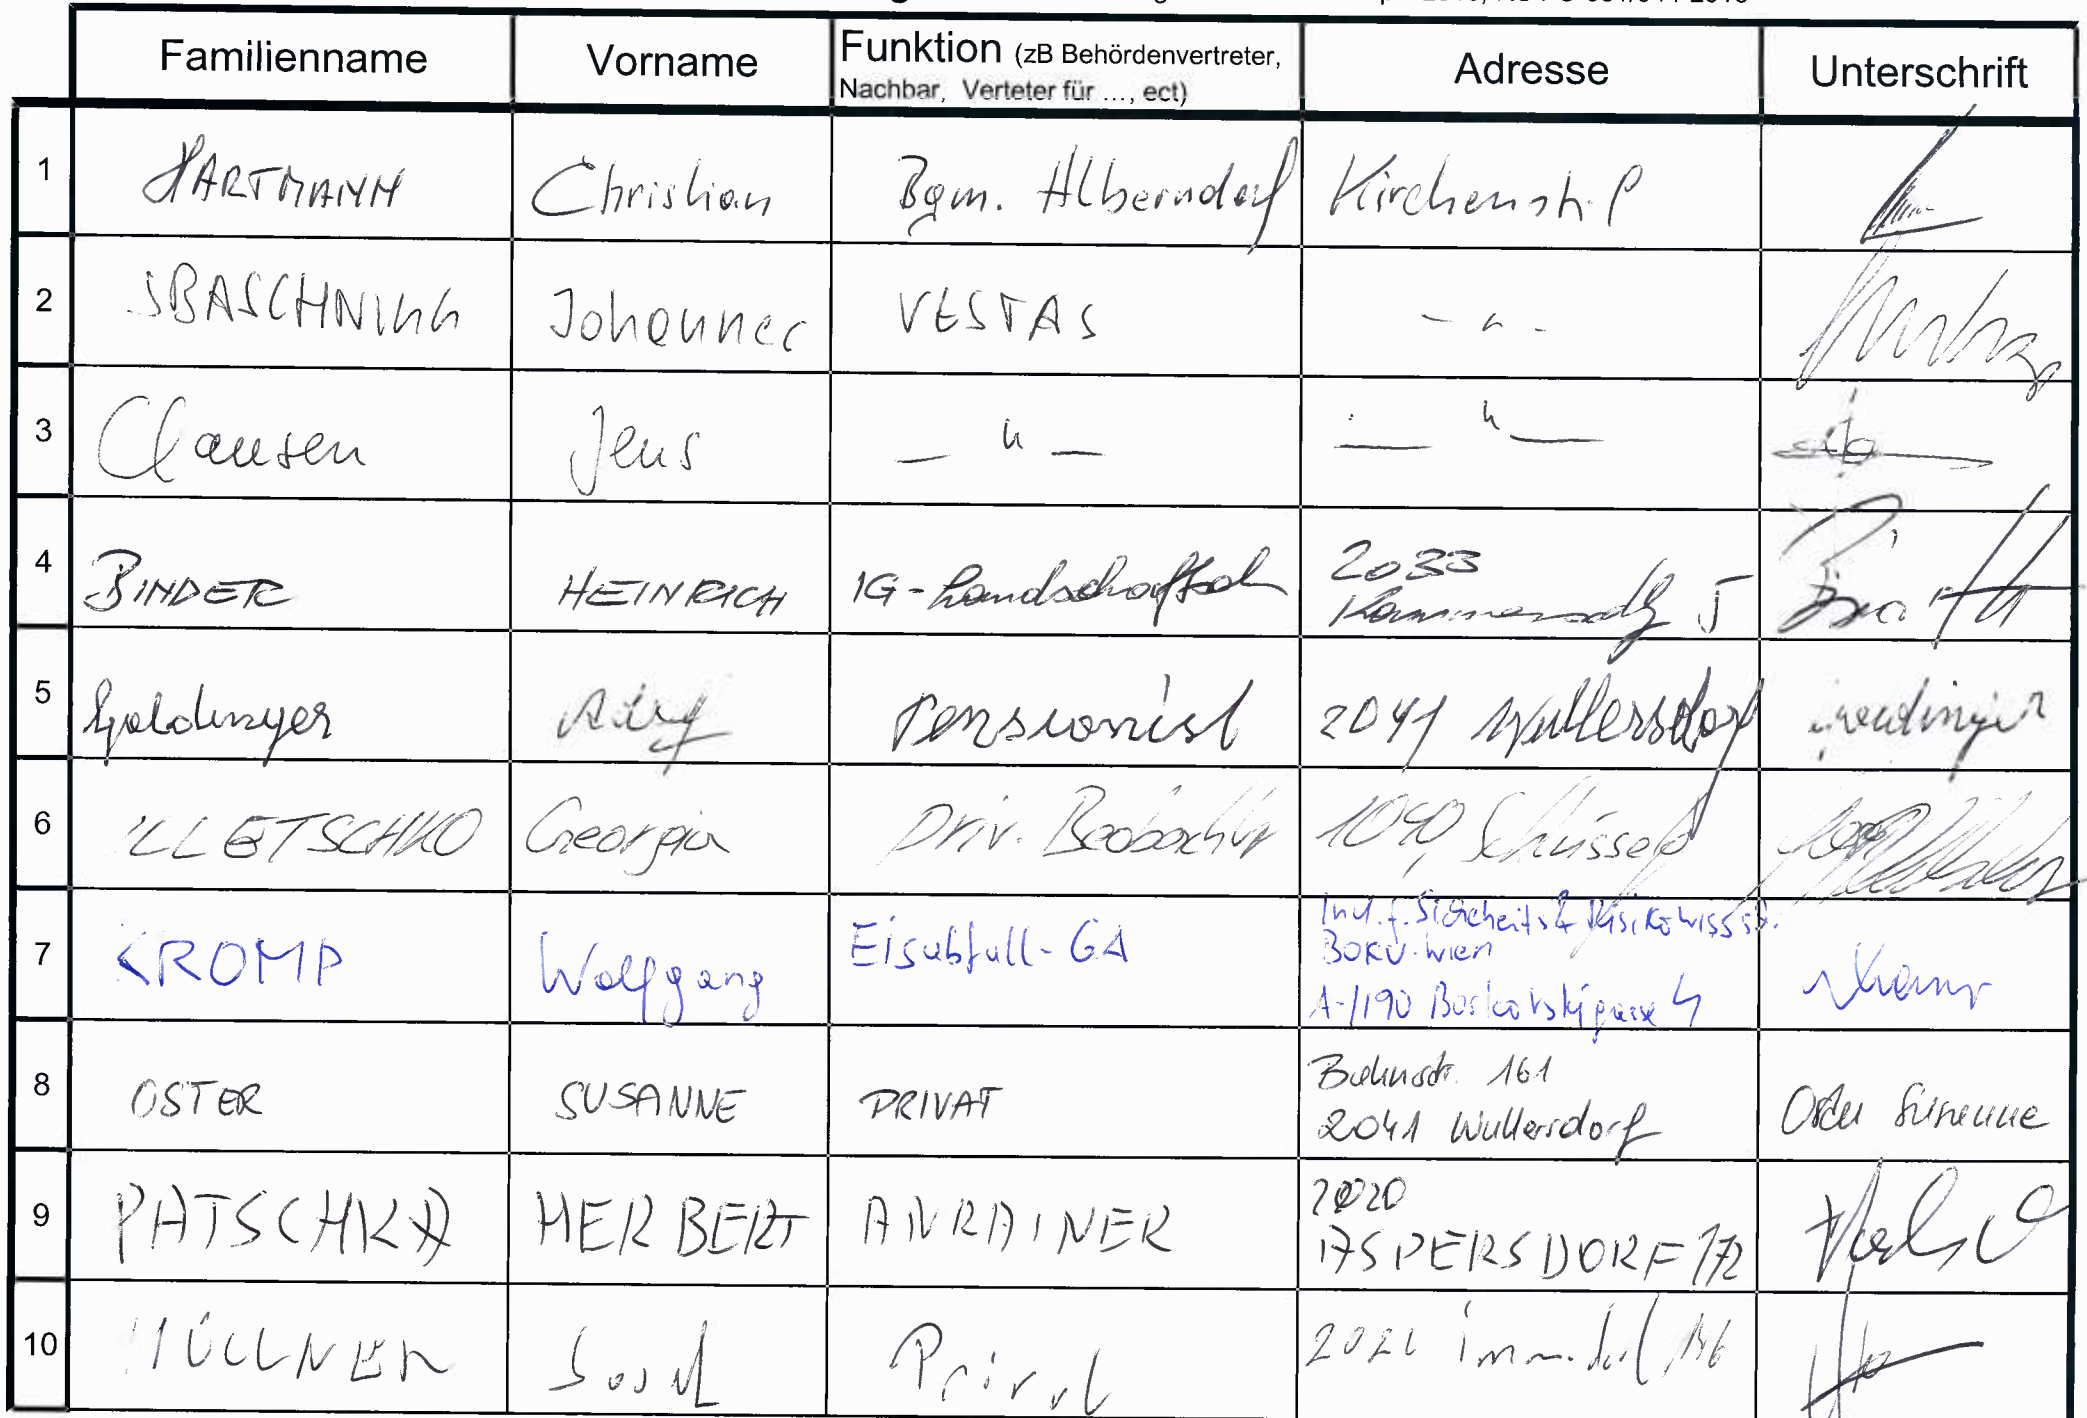 Familienname Vorname Funktion (zB Behördenvertreter, Nachbar, Verteter für ..., ect) Adresse Unterschrift
1 HARTMANN Christian Bgm. Alberndorf Kirchenstr.
2 SBASCHNIGG Johannes VESTAS – " –
3 Clausen Jens – " – – " –
4 BINDER HEINRICH IG-Landschaftsch 2033
Kammersdf 5
5 Goldinger Pensionist 2041 Wullersdorf Goldinger
6 ILLETSCHKO Georgia priv. Beobachter 1040,
7 KROMP Wolfgang Eisabfall-GA Inst. f. Sicherheits & Risikowissst.
BOKU-Wien
A-1190 Borkowskigasse 4
8 OSTER SUSANNE PRIVAT Bahnstr. 161
2041 Wullersdorf Oster Susanne
9 PATSCHKA HERBERT ANRAINER 2020
ASPERSDORF 172
10 MÜLLNER Josef Privat